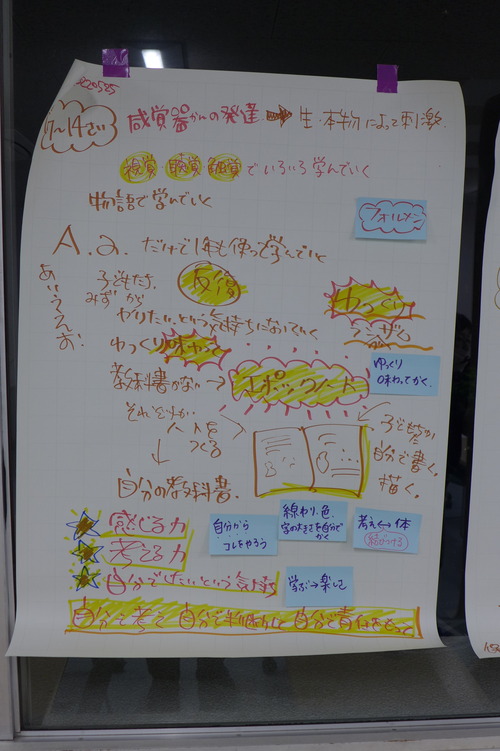 220525
7〜14さい
感覚器かんの発達 ➡ 生・本物によって刺激
視覚 聴覚 触覚 でいろいろ学んでいく
物語で学んでいく
フォルメン
A.a. だけで1年も使って学んでいく
あいうえお
子どもたち
みずから
やりたい、という気持ちになっていく
反復
ゆっくり
ゆっくり味わって
教科書がない → エポックノート
ゆっくり
味わってかく。
それぞれが
一人一人
つくる
↓
自分の教科書.
子どもたちが
自分で書く。
描く。
感じる力
考える力
自分でしたいという気持ち
自分から
コレをやろう
線わり、色、
字の大きさを自分で
かく
考え ↔ 体
学ぶ→楽しい
自分で考え 自分で判断して 自分で責任をもって